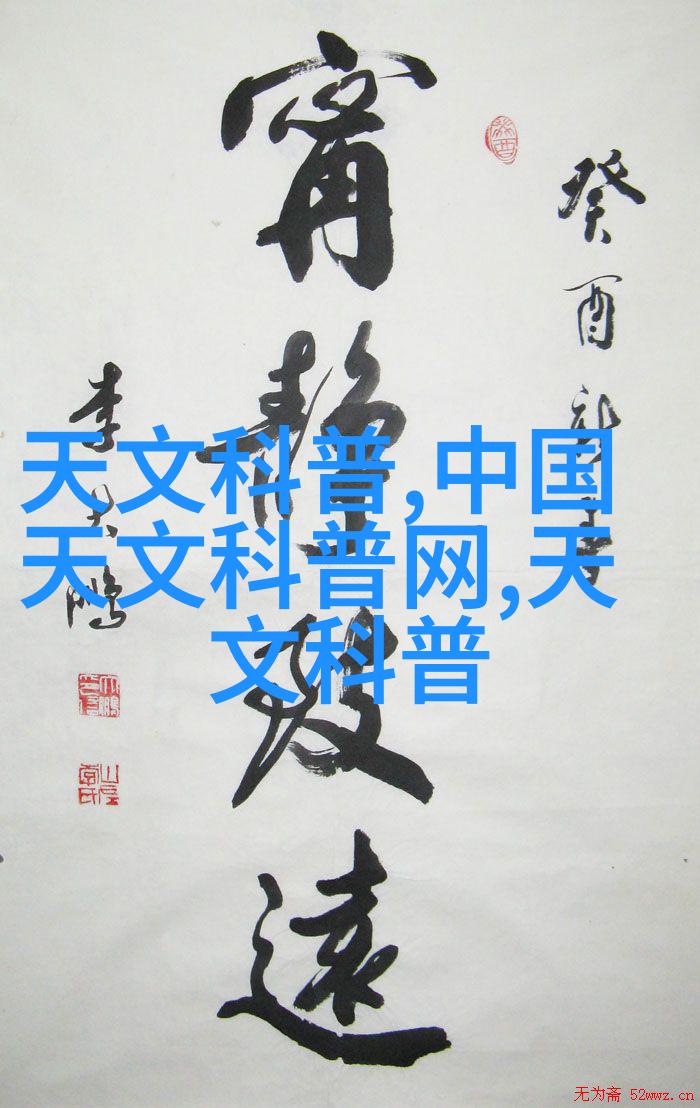 甯静致遠
癸酉新春
李大鹏
天文科普,中国
天文科普网,天
文科普
无为斋 52wwz.cn